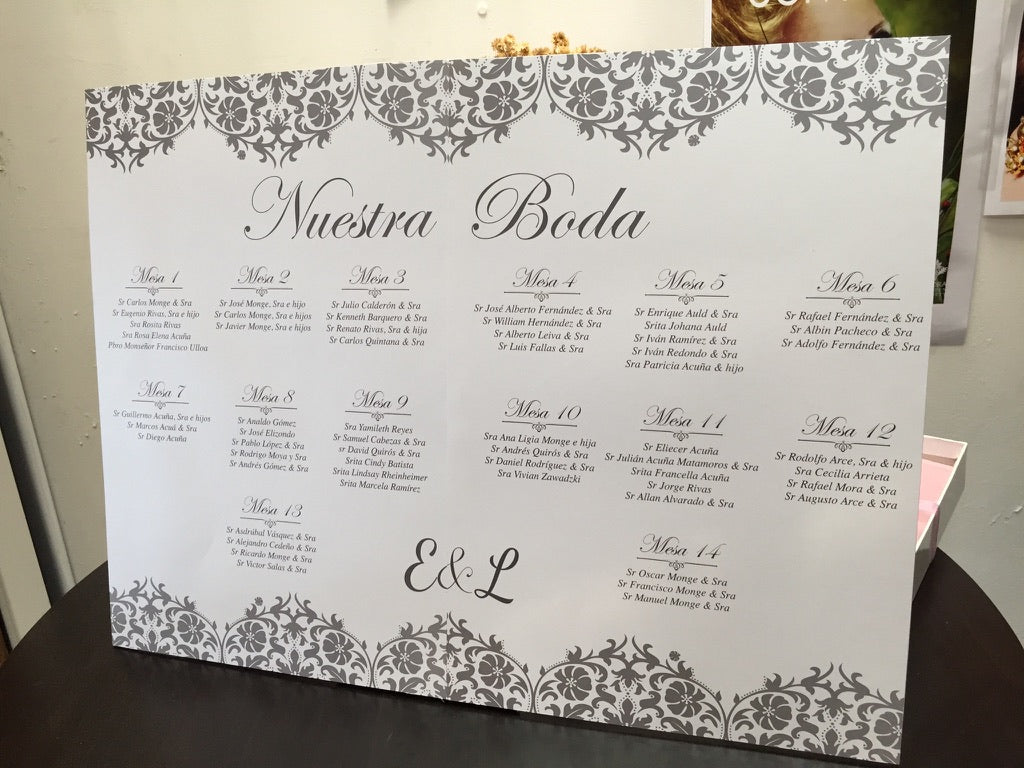 Nuestra Boda
Mesa 1
Sr Carlos Monge & Sra
Sr Eugenio Rivas, Sra e hijo
Sra Rosita Rivas
Sra Rosa Elena Acuña
Pbro Monseñor Francisco Ulloa
Mesa 2
Sr José Monge, Sra e hijo
Sr Carlos Monge, Sra e hijos
Sr Javier Monge, Sra e hijos
Mesa 3
Sr Julio Calderón & Sra
Sr Kenneth Barquero & Sra
Sr Renato Rivas, Sra & hija
Sr Carlos Quintana & Sra
Mesa 4
Sr José Alberto Fernández & Sra
Sr William Hernández & Sra
Sr Alberto Leiva & Sra
Sr Luis Fallas & Sra
Mesa 5
Sr Enrique Auld & Sra
Srita Johana Auld
Sr Iván Ramírez & Sra
Sr Iván Redondo & Sra
Sra Patricia Acuña & hijo
Mesa 6
Sr Rafael Fernández & Sra
Sr Albin Pacheco & Sra
Sr Adolfo Fernández & Sra
Mesa 7
Sr Guillermo Acuña, Sra e hijos
Sr Marcos Acuá & Sra
Sr Diego Acuña
Mesa 8
Sr Analdo Gómez
Sr José Elizondo
Sr Pablo López & Sra
Sr Rodrigo Moya y Sra
Sr Andrés Gómez & Sra
Mesa 9
Sra Yamileth Reyes
Sr Samuel Cabezas & Sra
sr David Quirós & Sra
Srita Cindy Batista
Srita Lindsay Rheinheimer
Srita Marcela Ramírez
Mesa 10
Sra Ana Ligia Monge e hija
Sr Andrés Quirós & Sra
Sr Daniel Rodríguez & Sra
Sra Vivian Zawadzki
Mesa 11
Sr Eliecer Acuña
Sr Julián Acuña Matamoros & Sra
Srita Francella Acuña
Sr Jorge Rivas
Sr Allan Alvarado & Sra
Mesa 12
Sr Rodolfo Arce, Sra & hijo
Sra Cecilia Arrieta
Sr Rafael Mora & Sra
Sr Augusto Arce & Sra
Mesa 13
Sr Asdrúbal Vásquez & Sra
Sr Alejandro Cedeño & Sra
Sr Ricardo Monge & Sra
Sr Victor Salas & Sra
E&L
Mesa 14
Sr Oscar Monge & Sra
Sr Francisco Monge & Sra
Sr Manuel Monge & Sra